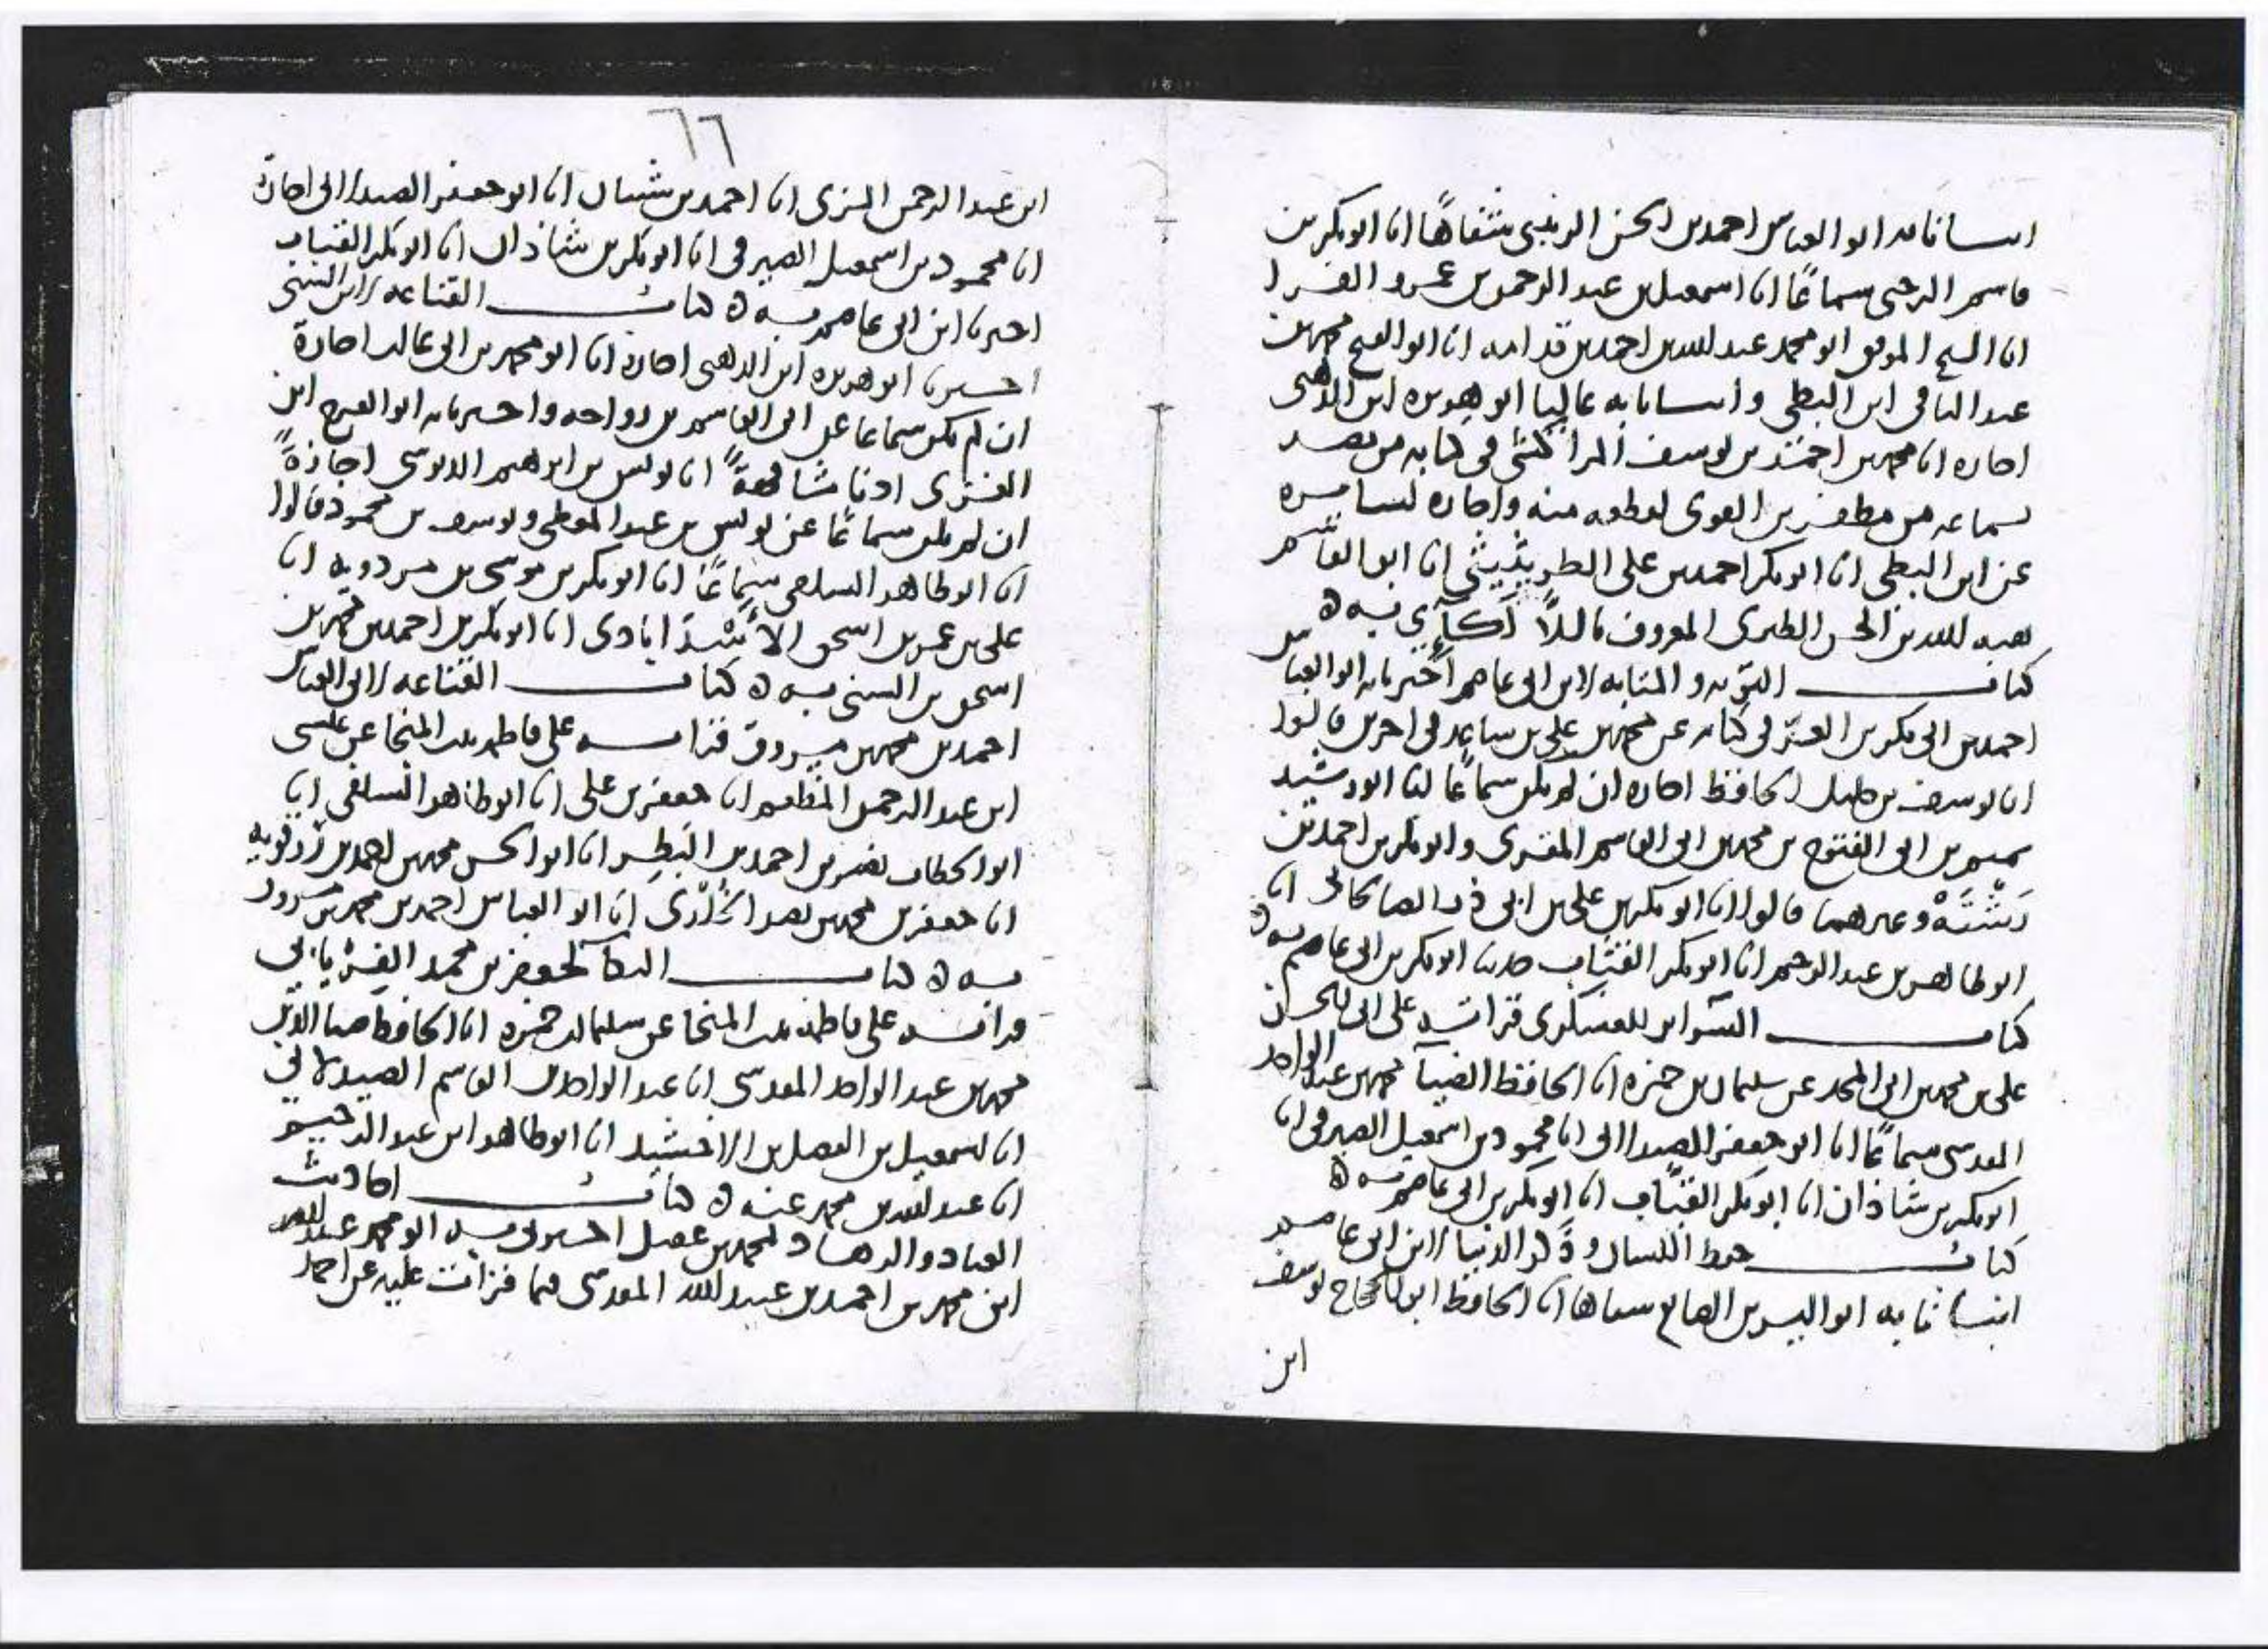 انبانا به ابو العباس احمد بن الحسن الزينبي شفاها انا ابو بكر بن
قاسم الرحبي سماعًا انا اسمعيل بن عبد الرحمن بن عمرو الفرا
انا الشيخ الموفق ابو محمد عبد الله بن احمد بن قدامه انا ابو الفتح محمد بن
عبد الباقي ابن البطي وانبانا به عاليا ابو هريره ابن الذهبي
اجازه انا محمد بن احمد بن يوسف المراكشي في كتابه من مصر
بسماعه من مظفر بن الفوي لقطعه منه واجازه لسايره
عن ابن البطي انا ابو بكر احمد بن علي الطريثيثي انا ابو القاسم
هبه الله بن الحسن الطبري المعروف باللالكآي به ه
كتاب التوبه و المتابه لابن ابي عاصم اخبرنا به ابو العباس
احمد بن ابي بكر بن العز في كتابه عن محمد بن علي بن ساعد في اخرين قالوا
انا يوسف بن خليل الحافظ اجازه ان لم يكن سماعًا لنا ابو رشيد
بن ابي الفتوح بن محمد بن ابي القاسم المقري وابو بكر بن احمد بن
وغيرهما قالوا انا ابو بكر بن علي بن ابي ذر الصالحاني انا
ابو طاهر بن عبد الرحيم انا ابو بكر القباب حدثنا ابو بكر بن ابي عاصم به ه
كتاب السرائر للعسكري قرات على ابي الحسن
علي بن محمد بن ابي المجد عن سليمان بن حمزه انا الحافظ الضيآ محمد بن عبد الواحد
المقدسي سماعًا انا ابو جعفر الصيدلاني انا محمود بن اسمعيل الصيرفي انا
ابو بكر بن شاذان انا ابو بكر القباب انا ابو بكر بن ابي عاصم به ه
كتاب حفظ اللسان وذكر الدنيا لابن ابي عاصم
انبانا به ابو اليسر بن الصايغ شفاها انا الحافظ ابو الحجاج يوسف
ابن
٦٦
ابن عبد الرحمن المزي انا احمد بن شيبان انا ابو جعفر الصيدلاني اجازة
انا محمود بن اسمعيل الصيرفي انا ابو بكر بن شاذان انا ابو بكر القباب
اخبرنا ابن ابي عاصم به ه كتاب القناعه لابن السني
اخبرنا ابو هريره ابن الذهبي اجازه انا ابو محمد بن ابي غالب اجازة
ان لم يكن سماعا على ابي القاسم بن رواحه واخبرنا به ابو الفرج ابن
الغزي اذنا مشافهةً انا يونس بن ابرهيم الدبوسي اجازةً
ان لم يكن سماعًا عن يونس بن عبد المعطي ويوسف بن محمود قالوا
انا ابو طاهر السلفي سماعًا انا ابو بكر بن موسى بن مردويه انا
علي بن عمر بن اسحق الاسدابادي انا ابو بكر بن احمد بن محمد بن
اسحق بن السني به ه كتاب القناعه لابي العباس
احمد بن محمد بن مسروق قرات على فاطمه بنت المنجا عن عيسى
ابن عبد الرحمن المطعم انا جعفر بن علي انا ابو طاهر السلفي انا
ابو الخطاب نصر بن احمد بن البطر انا ابو الحسن محمد بن احمد بن رزقويه
انا جعفر بن محمد بن نصر الخلدي انا ابو العباس احمد بن محمد بن مسروق
به ه كتاب البكآ لجعفر بن محمد الفريابي
قراته على فاطمه بنت المنجا عن سليمان بن حمزه انا الحافظ ضيا الدين
محمد بن عبد الواحد المقدسي انا عبد الواحد بن القاسم الصيدلاني
انا اسمعيل بن الفضل بن الاخشيد انا ابو طاهر ابن عبد الرحيم
انا عبد الله بن محمد عنه ه كتاب احاديث
العباد والزهاد لمحمد بن عقيل اخبرني به ابو محمد عبد الله
ابن محمد بن احمد بن عبيد الله المقدسي فيما قرات عليه عن احمد